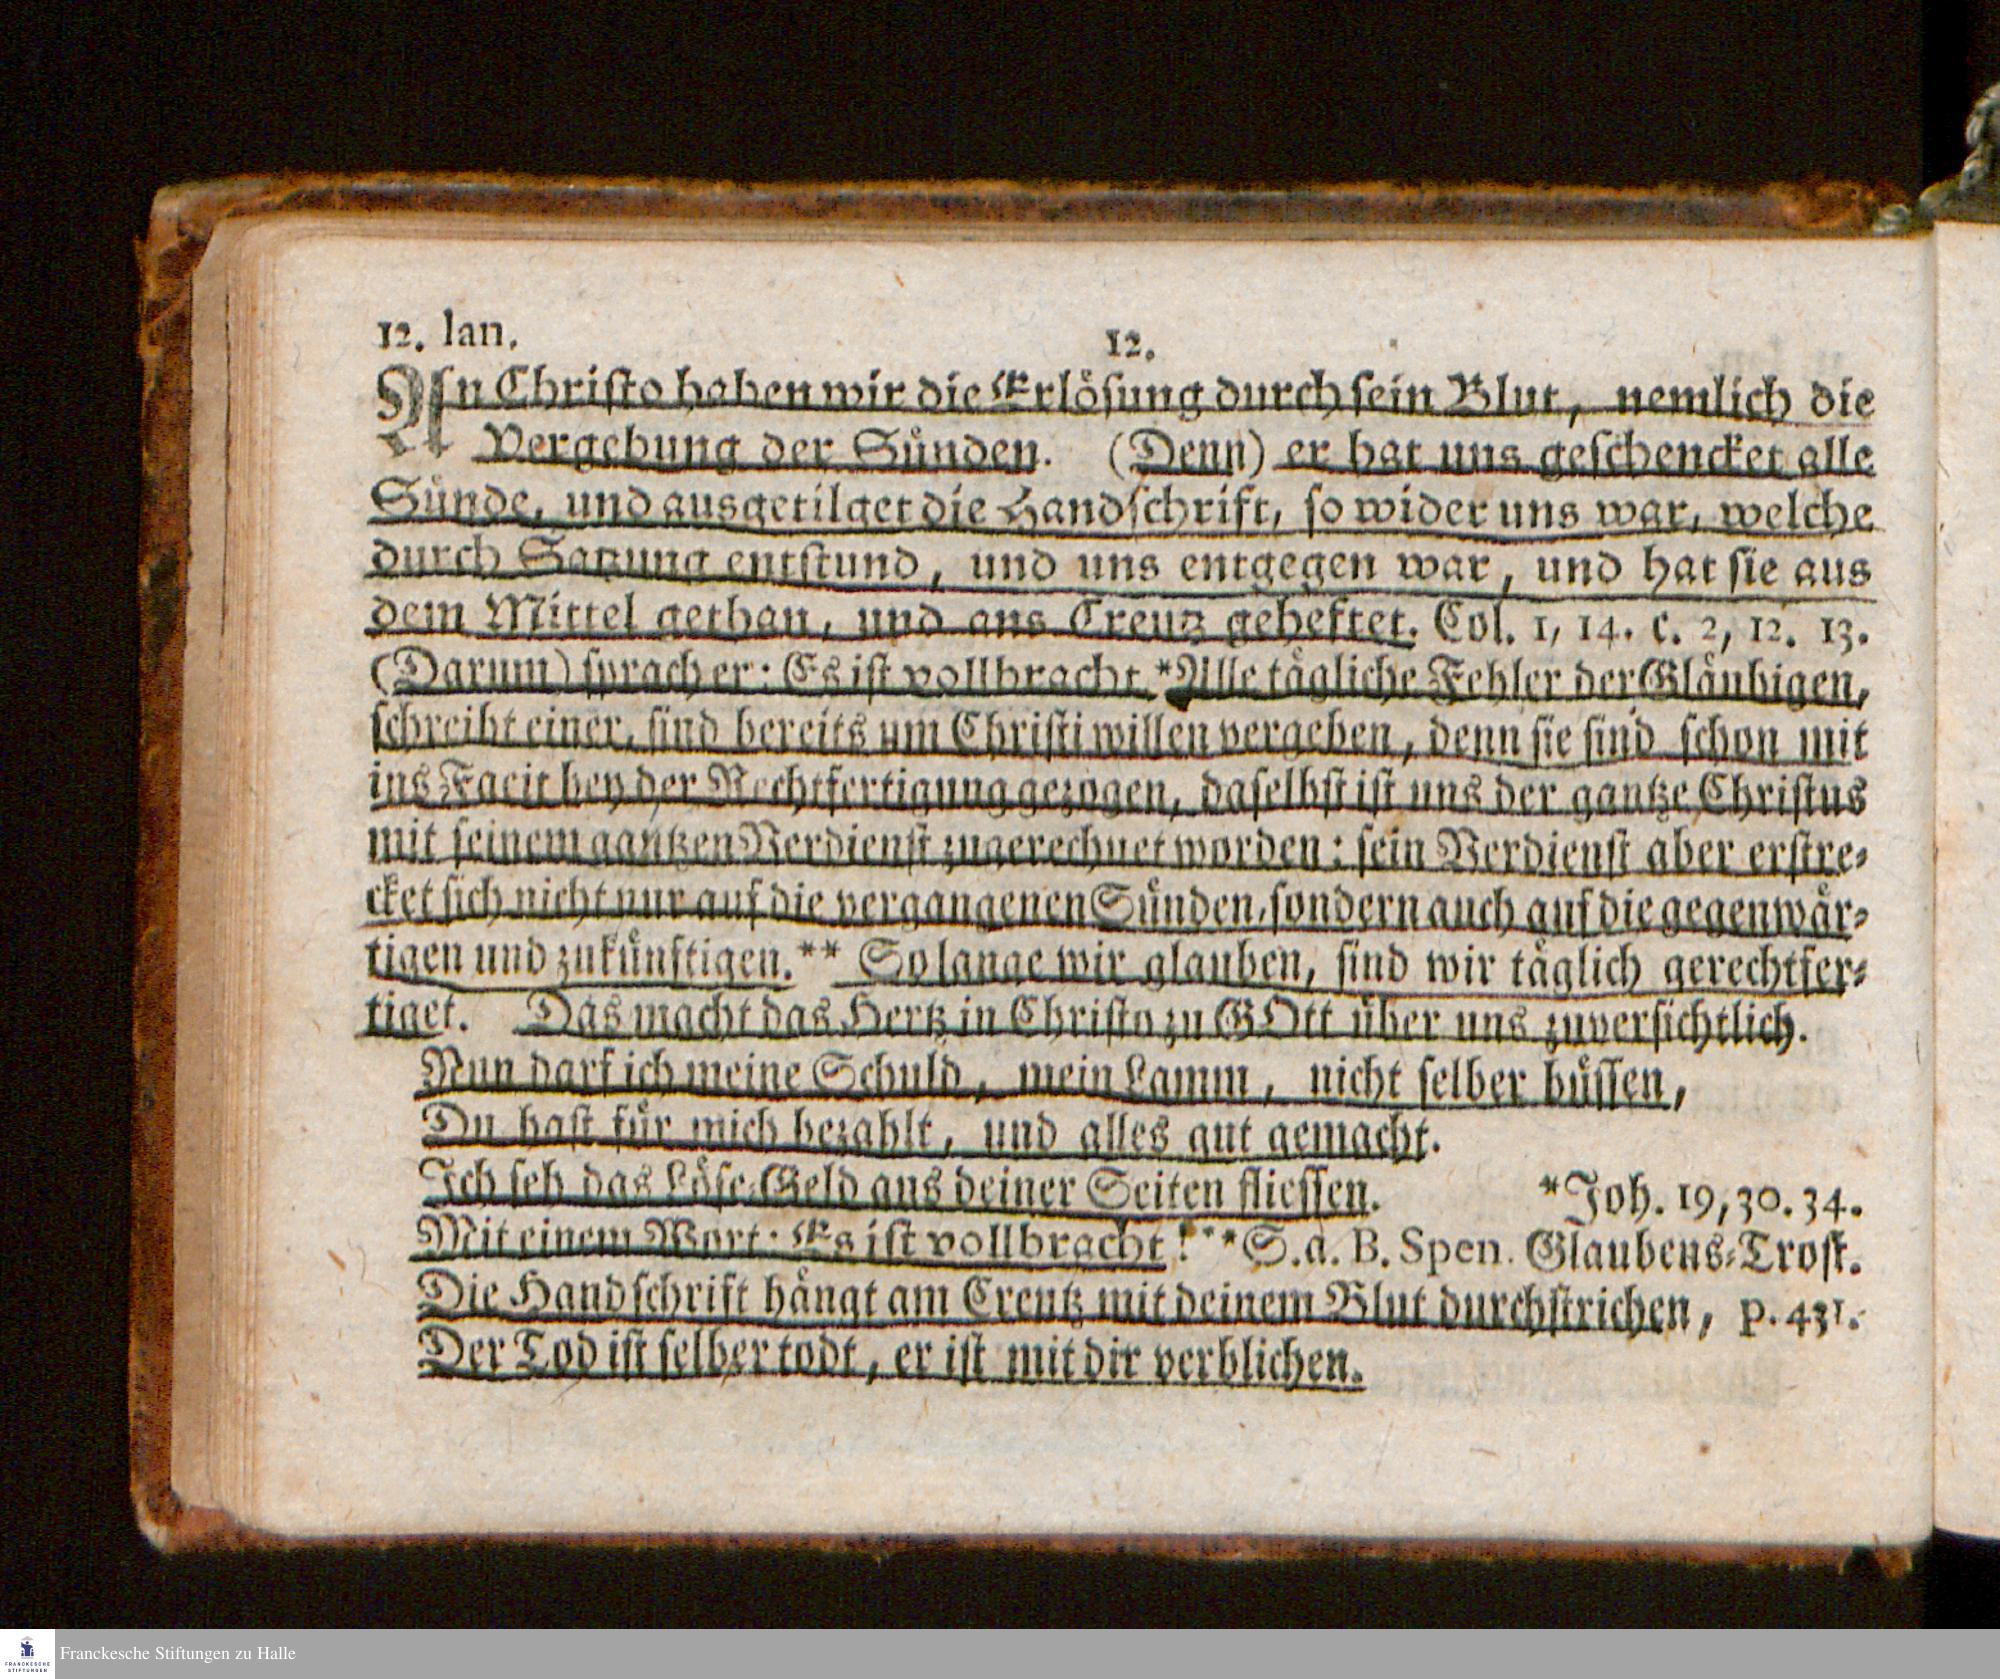 12. Ian.
12.
An Christo haben wir die Erlösung durch sein Blut, nemlich die
Vergebung der Sünden. (Denn) er hat uns geschencket alle
Sünde, und ausgetilget die Handschrift, so wider uns war, welche
durch Satzung entstund, und uns entgegen war, und hat sie aus
dem Mittel gethan, und ans Creutz geheftet. Col. 1, 14. c. 2, 12. 13.
(Darum) sprach er: Es ist vollbracht.*Alle tägliche Fehler der Gläubigen,
schreibt einer, sind bereits um Christi willen vergeben, denn sie sind schon mit
ins Facit bey der Rechtfertigung gezogen, daselbst ist uns der gantze Christus
mit seinem gantzen Verdienst zugerechnet worden: sein Verdienst aber erstre-
cket sich nicht nur auf die vergangenen Sünden, sondern auch auf die gegenwär-
tigen und zukünftigen.** So lange wir glauben, sind wir täglich gerechtfer-
tiget. Das macht das Hertz in Christo zu GOtt über uns zuversichtlich.
Nun darf ich meine Schuld, mein Lamm, nicht selber büssen,
Du hast für mich bezahlt, und alles gut gemacht.
Ich seh das Löse-Geld aus deiner Seiten fliessen. *Joh. 19, 30. 34.
Mit einem Wort: Es ist vollbracht! **S. d. B. Spen. Glaubens-Trost.
Die Handschrift hängt am Creutz mit deinem Blut durchstrichen, p. 431.
Der Tod ist selber todt, er ist mit dir verblichen.
FRANCKESCHE
STIFTUNGEN
Franckesche Stiftungen zu Halle